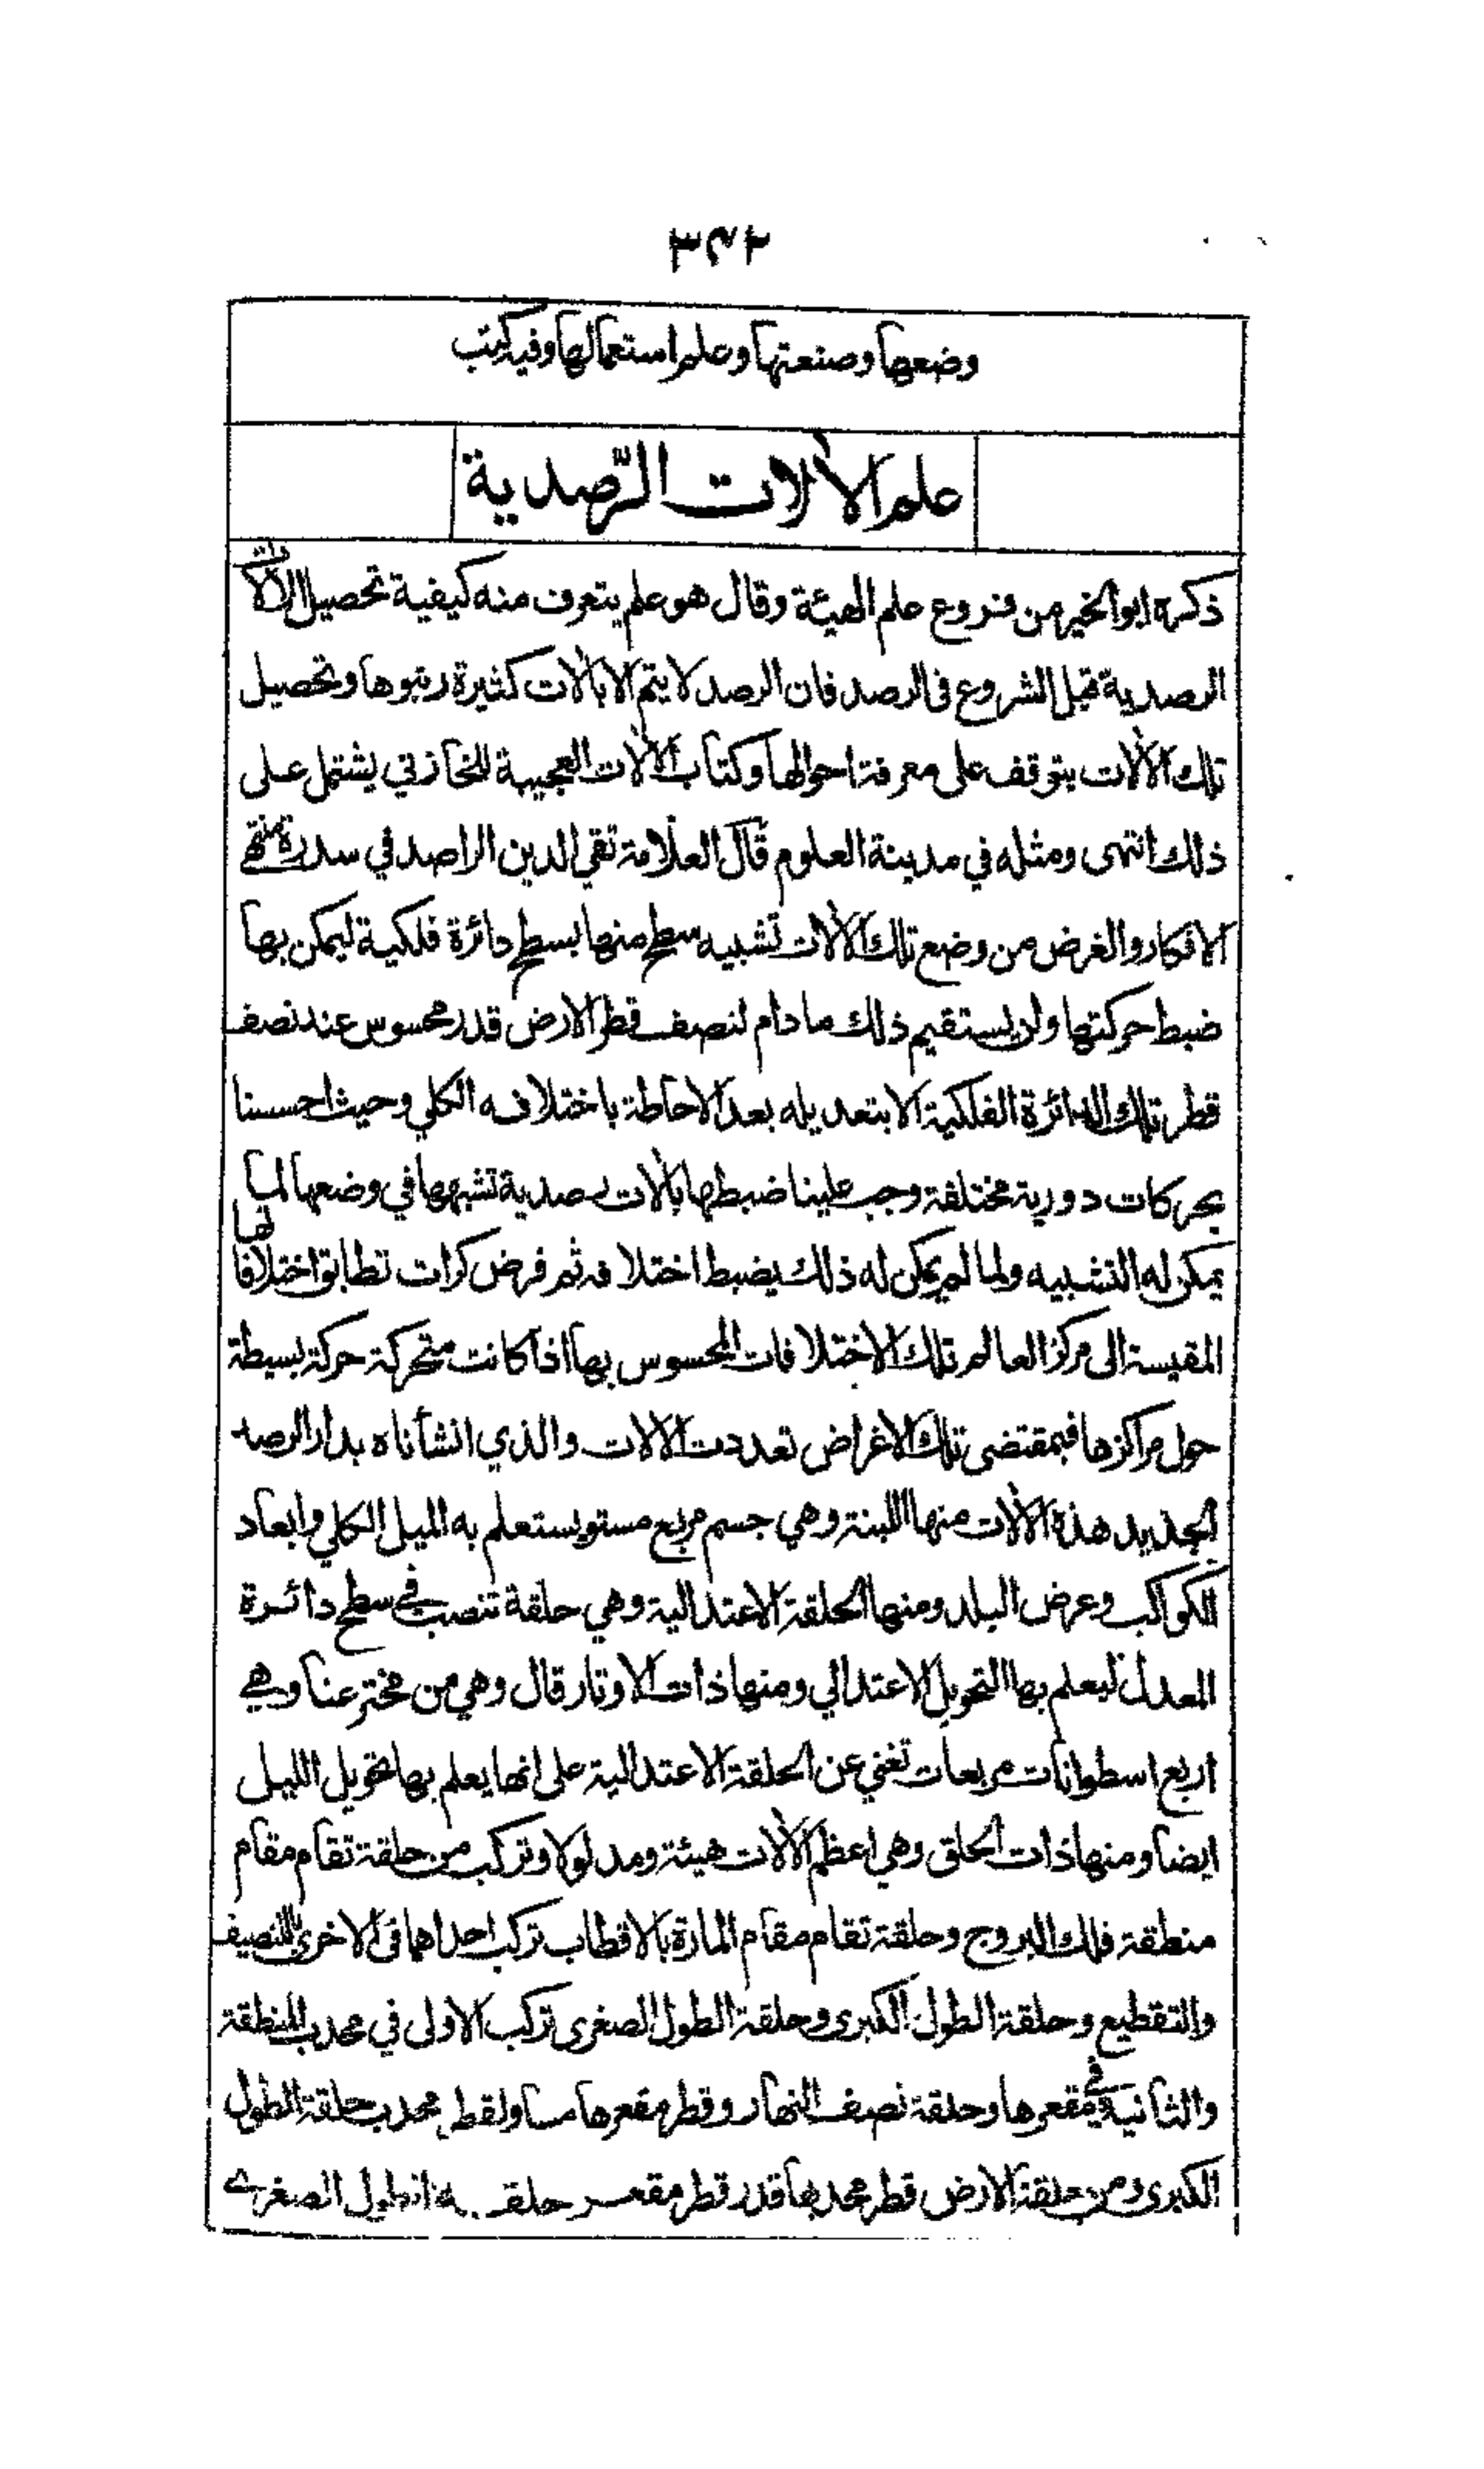 ٣٤٢
وضعها وصنعتها وعلم استعمالها وفيه كتب
علم الآلات الرّصدية
ذكره ابو الخير من فروع علم الهيئة وقال هو علم يتعرف منه كيفية تحصيل الآلات
الرصدية قبل الشروع فى الرصد فان الرصد لا يتم الا بآلات كثيرة رتبوها وتحصيل
تلك الآلات يتوقف على معرفة احوالها وكتاب الآلات العجيبة للخازني يشتمل على
ذلك انتهى ومثله في مدينة العلوم قال العلامة تقي الدين الراصد في سدرة منتهى
الافكار والغرض من وضع تلك الآلات تشبيه سطح منها بسطح دائرة فلكية ليمكن بها
ضبط حركتها ولن يستقيم ذلك ما دام لنصف قطر الارض قدر محسوس عند نصف
قطر تلك الدائرة الفلكية الا بتعديله بعد الاحاطة باختلافه الكلي وحيث احسسنا
بحركات دورية مختلفة وجب علينا ضبطها بآلات رصدية تشبهها في وضعها لما
يمكن له التشبيه ولما لم يمكن له ذلك يضبط اختلافه ثم فرض كرات تطابق اختلافاتها
المقيسة الى مركز العالم تلك الاختلافات المحسوس بها اذا كانت متحركة حركة بسيطة
حول مراكزها فبمقتضى تلك الاغراض تعددت الآلات والذي انشأناه بدار الرصد
الجديد هذه الآلات منها اللبنة وهي جسم مربع مستو يستعلم به الميل الكلي وابعاد
الكواكب وعرض البلد ومنها الحلقة الاعتدالية وهي حلقة تنصب في سطح دائرة
المعدل ليعلم بها التحويل الاعتدالي ومنها ذات الاوتار قال وهي من مخترعنا وهي
اربع اسطوانات مربعات تغني عن الحلقة الاعتدالية على انها يعلم بها تحويل الليل
ايضا ومنها ذات الحلق وهي اعظم الآلات هيئة ومدلولا وتركب من حلقة تقام مقام
منطقة فلك البروج وحلقة تقام مقام المارة بالاقطاب تركب احداهما فى الاخرى بالتنصيف
والتقطيع وحلقة الطول الكبرى وحلقة الطول الصغرى تركب الاولى في محدب المنطقة
والثانية في مقعرها وحلقة نصف النهار وقطر مقعرها مساو لقطر محدب حلقة الطول
الكبرى ومن حلقة الارض قطر محدبها قدر قطر مقعر حلقة الطول الصغرى